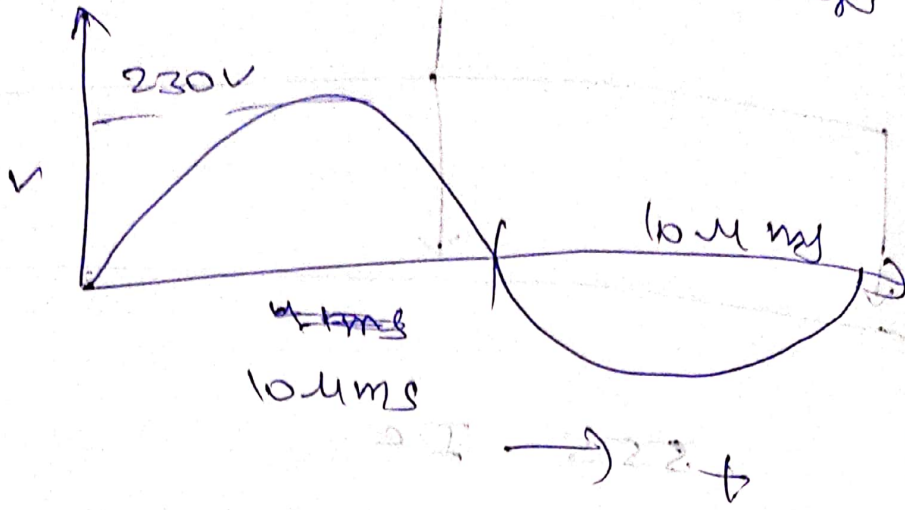 230V
V
10 μ ms
10 μms
t